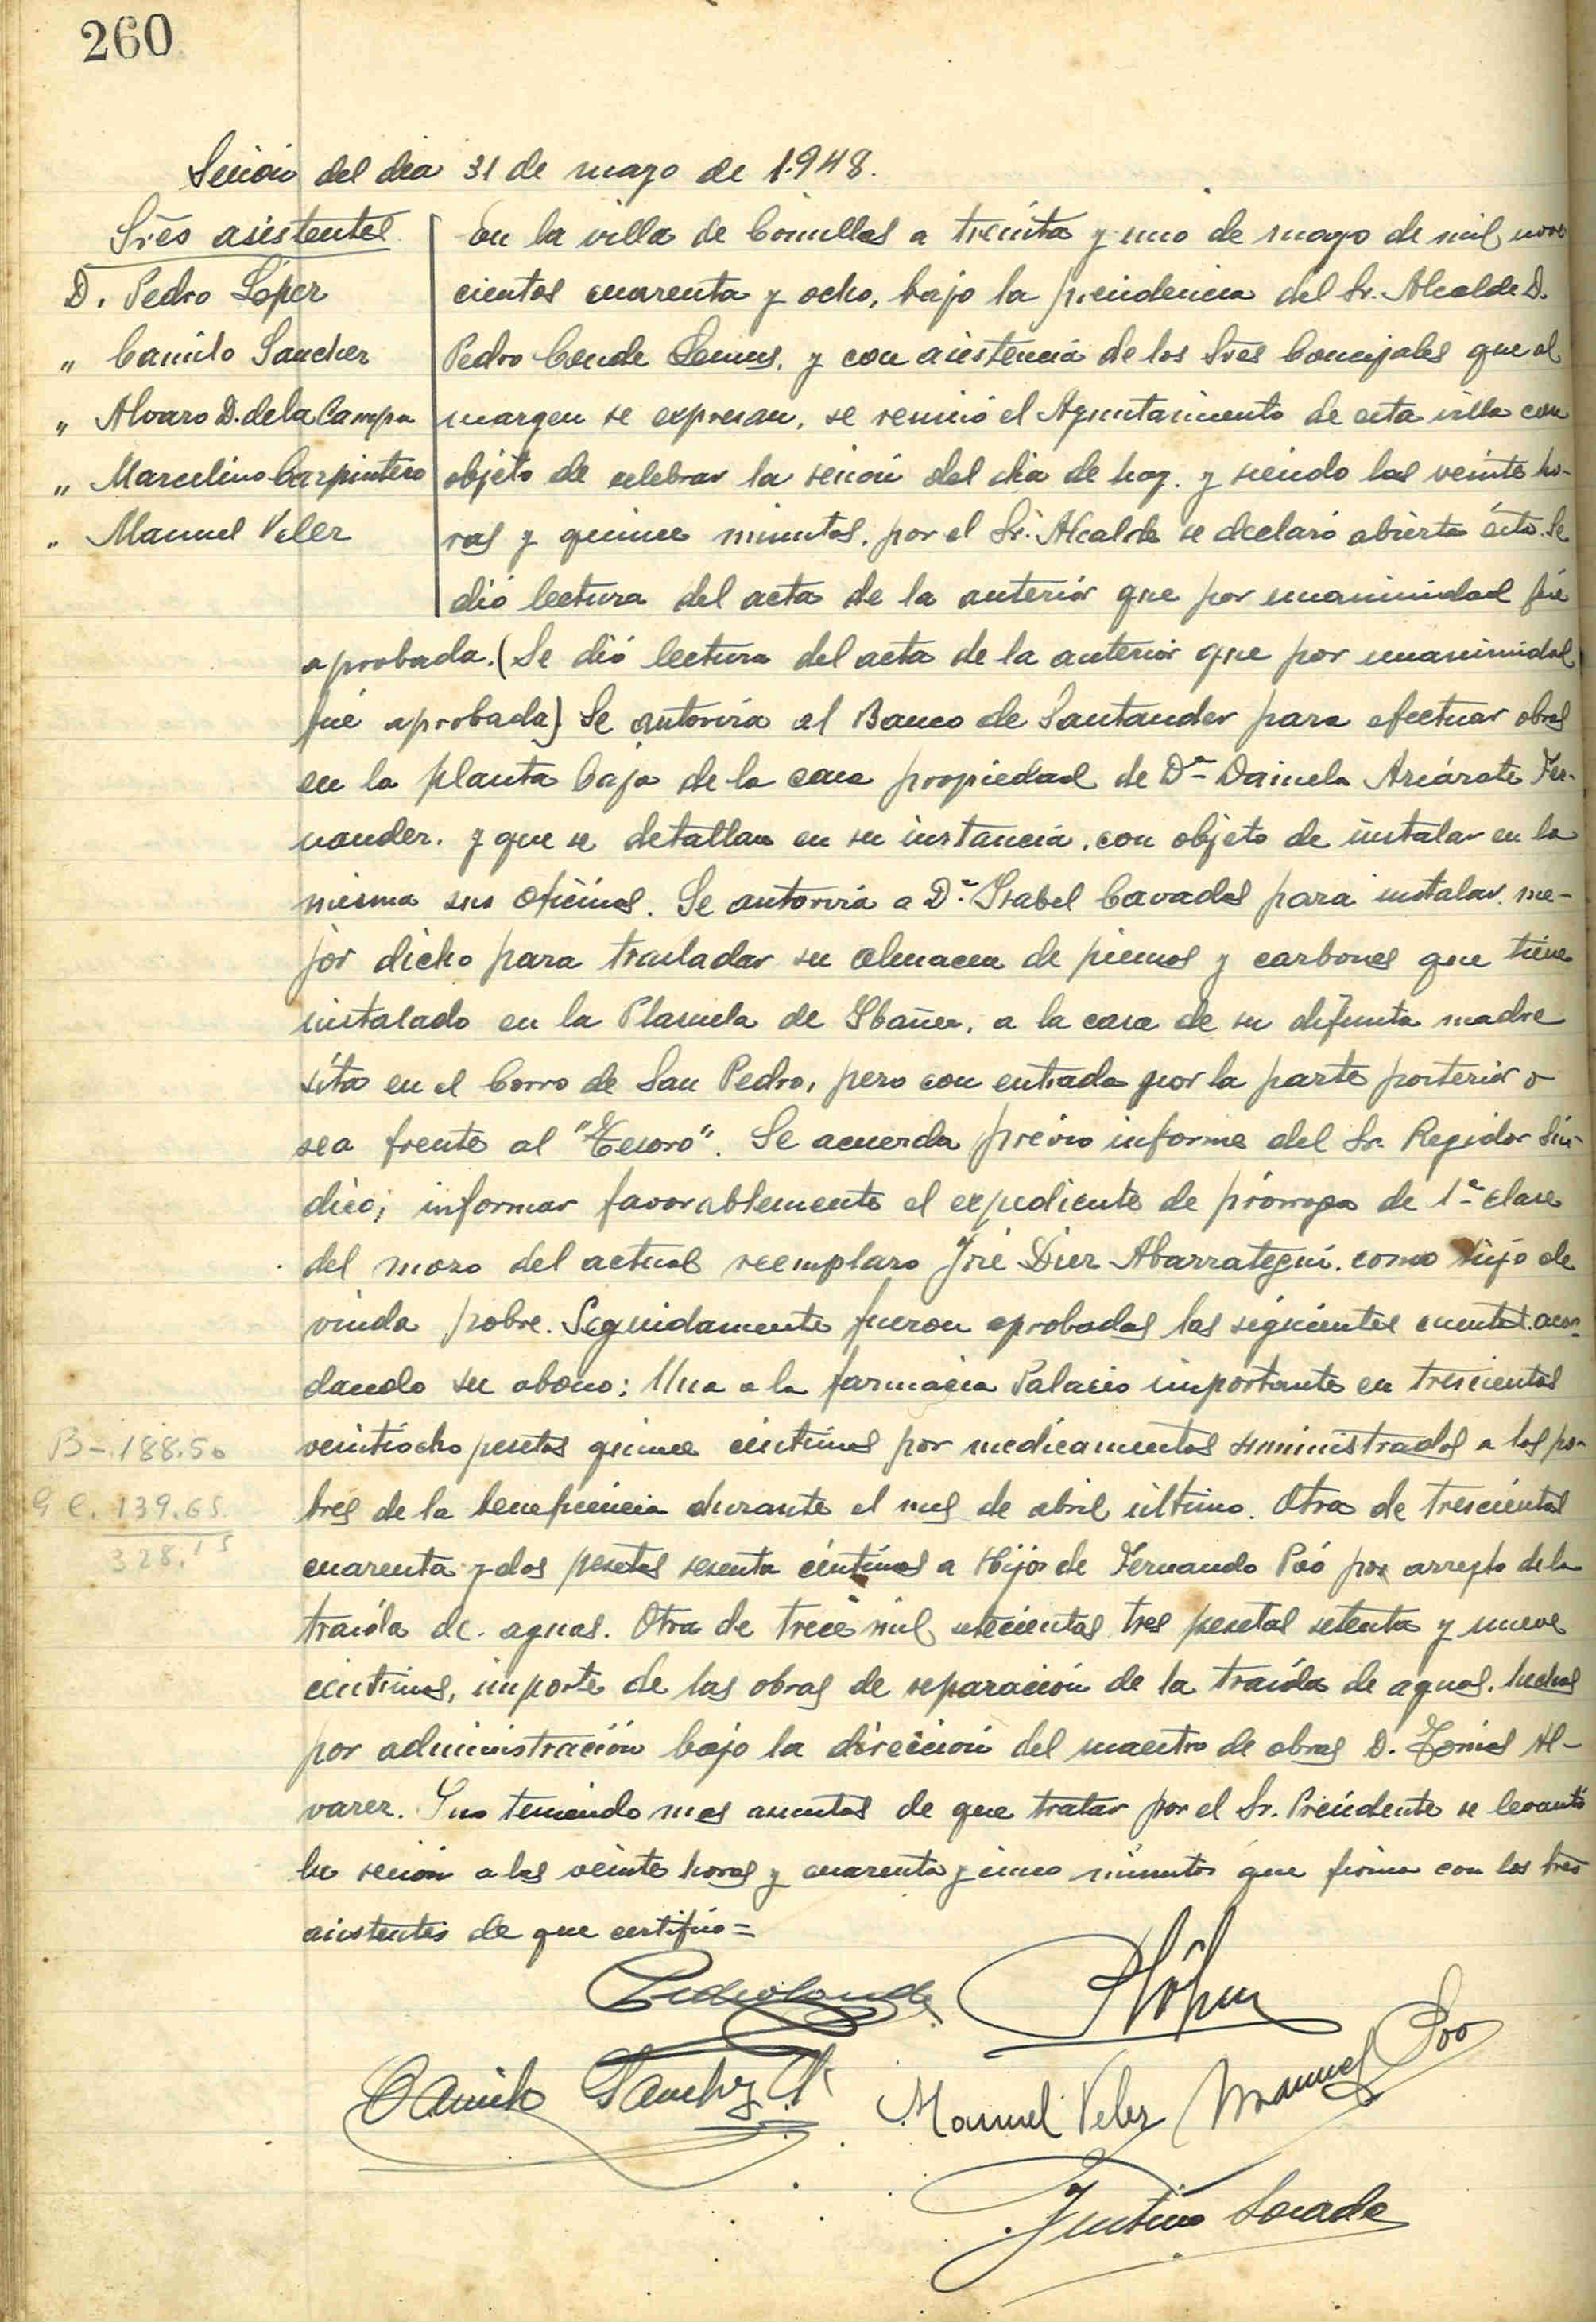 260
Sesión del dia 31 de mayo de 1.948.
Sres asistentes
D. Pedro López
" Camilo Sanchez
" Alvaro D. de la Campa
" Marcelino Carpintero
" Manuel Velez
En la villa de Comillas a treinta y uno de mayo de mil nove
cientos cuarenta y ocho, bajo la presidencia del Sr. Alcalde D.
Pedro Conde Lemus, y con asistencia de los Sres Concejales que al
margen se expresan, se reunió el Ayuntamiento de esta villa con
objeto de celebrar la sesión del dia de hoy. y siendo las veinte ho-
ras y quince minutos, por el Sr. Alcalde se declaró abierta ésta. Se
dió lectura del acta de la anterior que por unanimidad fué
aprobada. (Se dió lectura del acta de la anterior que por unanimidad
fué aprobada) Se autoriza al Banco de Santander para efectuar obras
en la planta baja de la casa propiedad de Dª Daniela Fer-
nandez. y que se detallan en su instancia, con objeto de instalar en la
misma sus oficinas. Se autoriza a Dª Isabel Cavadas para instalar, me-
jor dicho para trasladar su almacen de piensos y carbones que tiene
instalado en la Plazuela de Ibañez, a la casa de su difunta madre
sita en el Corro de San Pedro, pero con entrada por la parte posterior o
sea frente al "Tesoro". Se acuerda previo informe del Sr. Regidor Sín-
dico; informar favorablemente el expediente de prórroga de 1ª clase
del mozo del actual reemplazo José Diez Abarrategui. como hijo de
viuda pobre. Seguidamente fueron aprobadas las siguientes cuentas. acor-
dando su abono: Una a la farmacia Palacio importante en trescientas
veintiocho pesetas quince céntimos por medicamentos suministrados a los po-
bres de la beneficencia durante el mes de abril último. Otra de trescientas
cuarenta y dos pesetas sesenta céntimos a Hijos de Fernando Poó por arreglo de la
traída de aguas. Otra de trece mil setecientas tres pesetas setenta y nueve
céntimos, importe de las obras de reparación de la traída de aguas. hechas
por administración bajo la dirección del maestro de obras D. Tomás Al-
varez. Y no teniendo mas asuntos de que tratar por el Sr. Presidente se levantó
la sesión a las veinte horas y cuarenta y cinco minutos que firma con los Sres
asistentes de que certifico=
B-. 188.50
G C. 139.65
328.15
Pedro Conde
P López
Camilo Sanchez
Manuel Velez
Manuel Poo